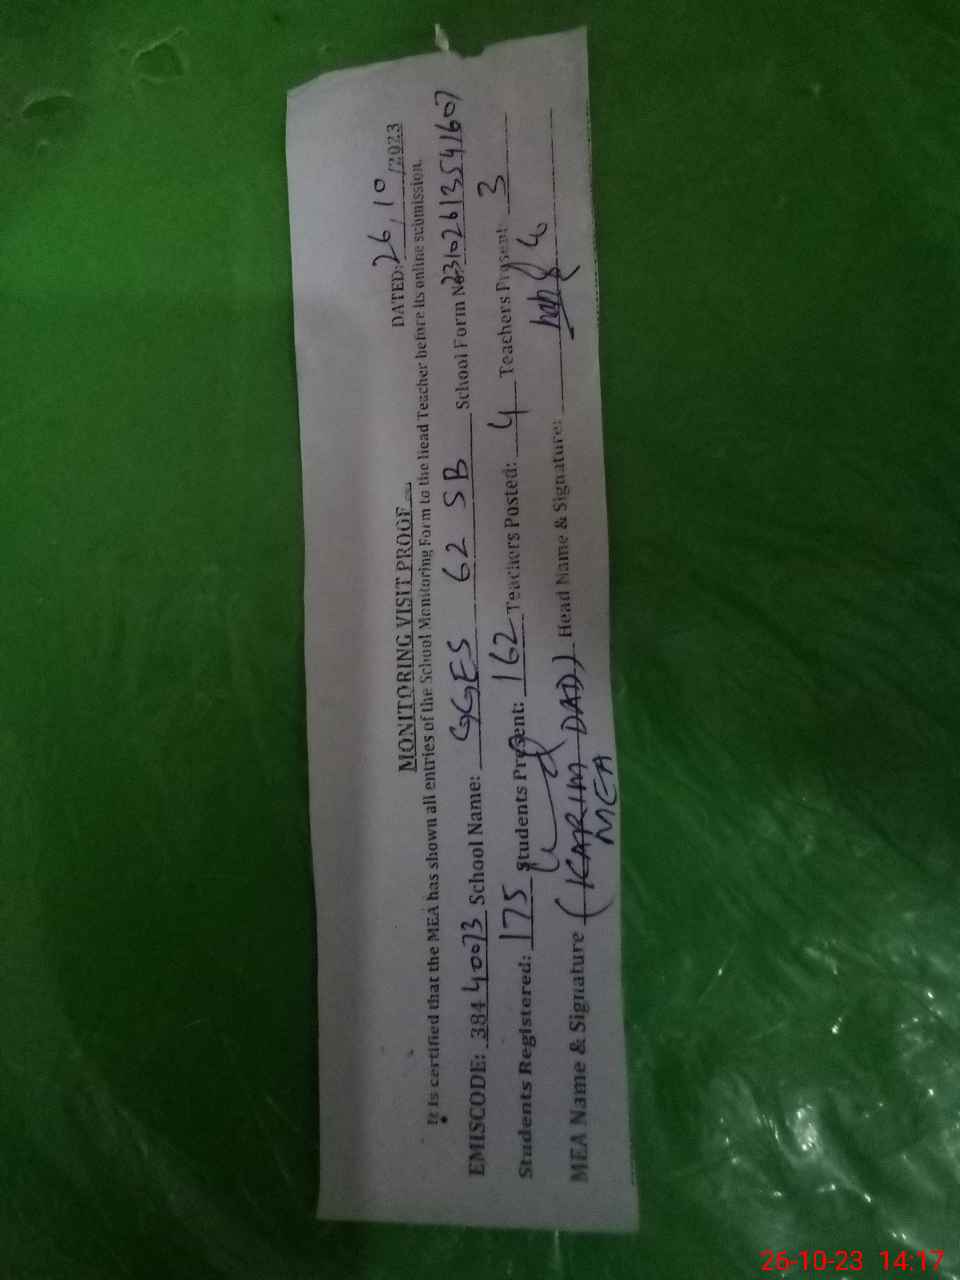 MONITORING VISIT PROOF
DATED: 26/10/2023
It is certified that the MEA has shown all entries of the School Monitoring Form to the Head Teacher before its online submission.
EMISCODE: 38440073 School Name: GGES 62 SB School Form No. 23102613541607
Students Registered: 175 Students Present: 162 Teachers Posted: 4 Teachers Present: 3
MEA Name & Signature (KARIM DAD) Head Name & Signature:
MEA
26-10-23 14:17